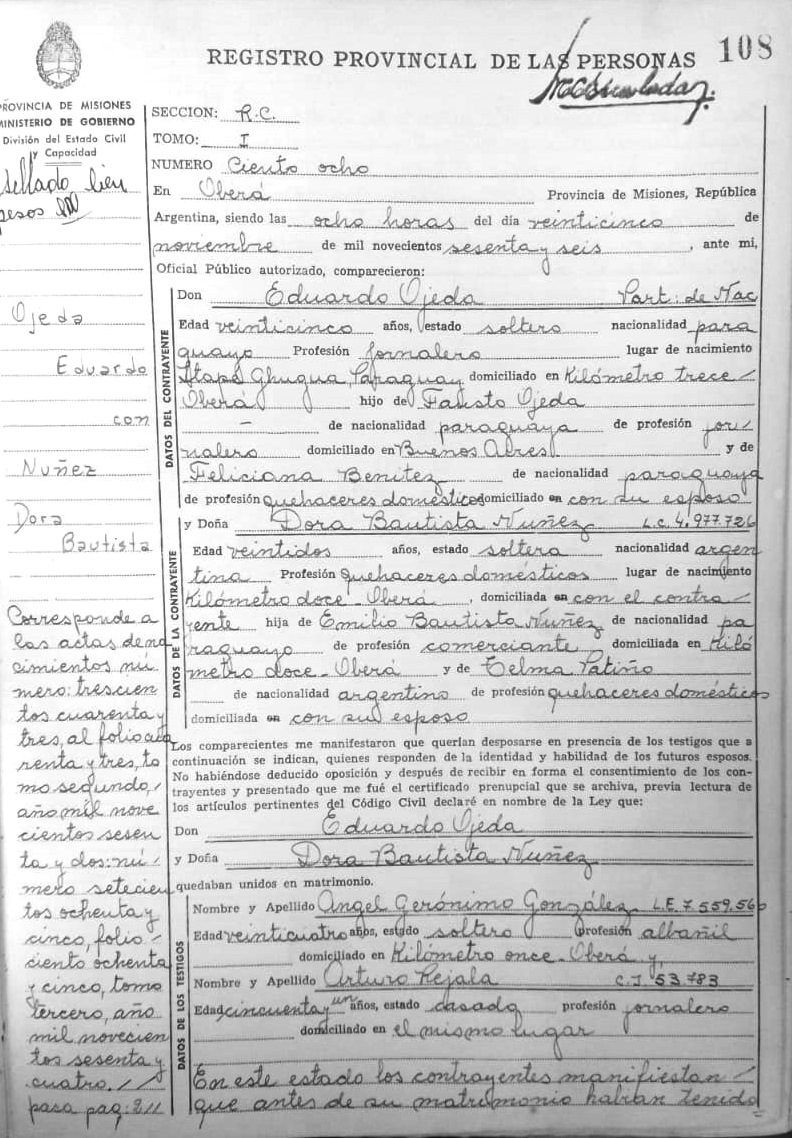 REGISTRO PROVINCIAL DE LAS PERSONAS 108
PROVINCIA DE MISIONES
MINISTERIO DE GOBIERNO
División del Estado Civil
y Capacidad
sellado cien
pesos
Ojeda
Eduardo
con
Nuñez
Dora
Bautista
Corresponde a
las actas de na
cimientos nú
mero: trescien
tos cuarenta y
tres, al folio cua
renta y tres, to
mo segundo,
año mil nove
cientos sesen
ta y dos: nú
mero setecien
tos ochenta y
cinco, folio
ciento ochenta
y cinco, tomo
tercero, año
mil novecien
tos sesenta y
cuatro. //
para pag: 2//
SECCION: R.C.
TOMO: I
NUMERO Ciento ocho
En Oberá Provincia de Misiones, República
Argentina, siendo las ocho horas del día veinticinco de
noviembre de mil novecientos sesenta y seis, ante mi,
Oficial Público autorizado, comparecieron:
DATOS DEL CONTRAYENTE
Don Eduardo Ojeda Part: de Nac
Edad veinticinco años, estado soltero nacionalidad para
guayo Profesión jornalero lugar de nacimiento
Itapé Paraguay, domiciliado en Kilómetro trece /
Oberá hijo de Fausto Ojeda
- de nacionalidad paraguaya de profesión jor/
nalero domiciliado en Buenos Aires y de
Feliciana Benitez de nacionalidad paraguaya
de profesión quehaceres domésticos domiciliado en con su esposo
DATOS DE LA CONTRAYENTE
y Doña Dora Bautista Nuñez L.C. 4.977.726
Edad veintidos años, estado soltera nacionalidad argen
tina Profesión quehaceres domésticos lugar de nacimiento
Kilómetro doce - Oberá, domiciliada en con el contra
yente hija de Emilio Bautista Nuñez de nacionalidad pa
raguayo de profesión comerciante domiciliada en Kiló
metro doce - Oberá y de Telma Patiño
de nacionalidad argentina de profesión quehaceres domésticos
domiciliada en con su esposo
Los comparecientes me manifestaron que querían desposarse en presencia de los testigos que a
continuación se indican, quienes responden de la identidad y habilidad de los futuros esposos.
No habiéndose deducido oposición y después de recibir en forma el consentimiento de los con-
trayentes y presentado que me fué el certificado prenupcial que se archiva, previa lectura de
los artículos pertinentes del Código Civil declaré en nombre de la Ley que:
Don Eduardo Ojeda
y Doña Dora Bautista Nuñez
quedaban unidos en matrimonio.
DATOS DE LOS TESTIGOS
Nombre y Apellido Angel Gerónimo González L.E. 7.559.560
Edad veinticuatro años, estado soltero profesión albañil
domiciliado en Kilómetro once - Oberá y,
Nombre y Apellido Arturo Rejala C.I 53.783
Edad cincuenta y un años, estado casado profesión jornalero
domiciliado en el mismo lugar
En este estado los contrayentes manifiestan /
que antes de su matrimonio habían tenido